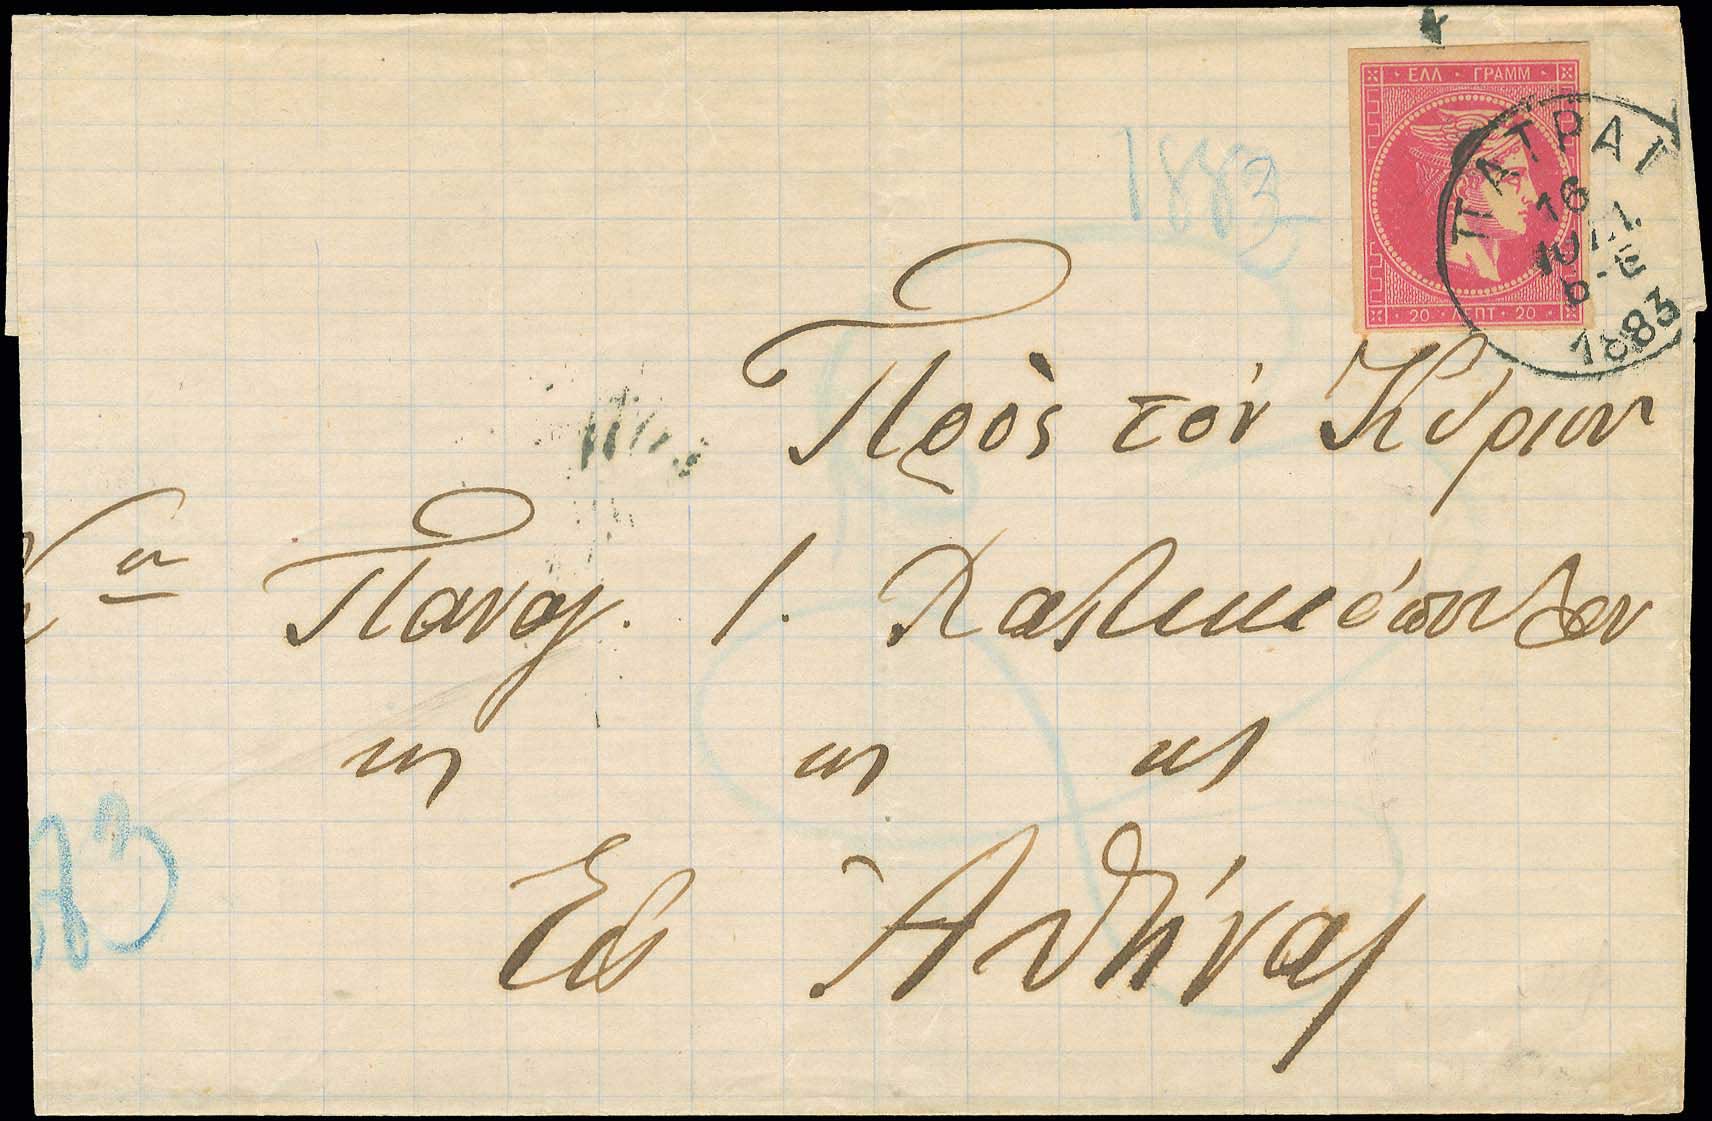 ΕΛΛ · ΓΡΑΜΜ
20 · ΛΕΠΤ · 20
ΠΑΤΡΑΙ
16
ΙΟΥΛ.
1883
1883
Πρὸς τὸν Κύριον
Παναγ. Ι. Χαλικιόπουλον
Εἰς Ἀθήνας
83